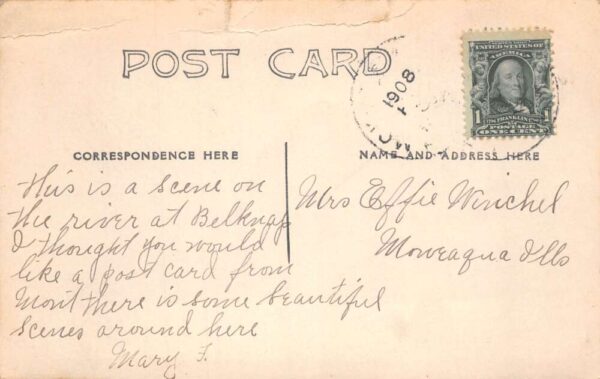 POST CARD
1908
UNITED STATES OF AMERICA
FRANKLIN
1 1
ONE CENT
CORRESPONDENCE HERE
NAME AND ADDRESS HERE
This is a scene on
the river at Belknap
I thought you would
like a post card from
Mont there is some beautiful
scenes around here
Mary F.
Mrs Effie Winchel
Moweaqua Ills